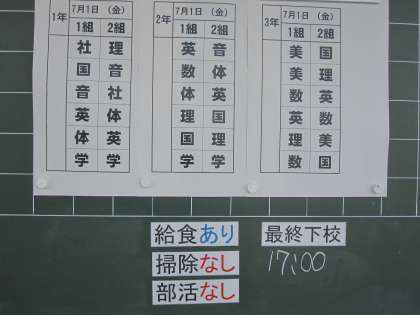 1年 7月1日 (金)
1組 2組
社 理
国 音
音 社
英 体
体 英
学 学
2年 7月1日 (金)
1組 2組
英 音
数 体
体 英
理 国
国 理
学 学
3年 7月1日 (金)
1組 2組
美 国
美 理
数 英
英 数
理 美
数 国
給食あり
掃除なし
部活なし
最終下校
17:00